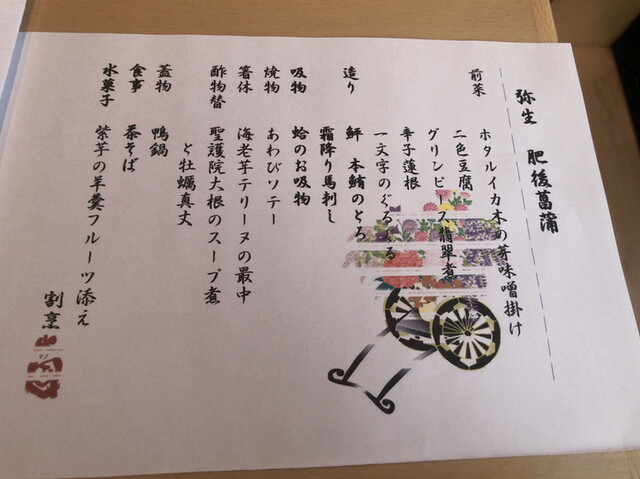 弥生 肥後菖蒲
前菜 ホタルイカ木の芽味噌掛け
二色豆腐
グリンピース翡翠煮
辛子蓮根
一文字のぐるぐる
造り 鮃 本鮪のとろ
霜降り馬刺し
吸物 蛤のお吸物
焼物 あわびソテー
箸休 海老芋テリーヌの最中
酢物替 聖護院大根のスープ煮
と牡蠣真丈
蓋物 鴨鍋
食事 茶そば
水菓子 紫芋の羊羹フルーツ添え
割烹